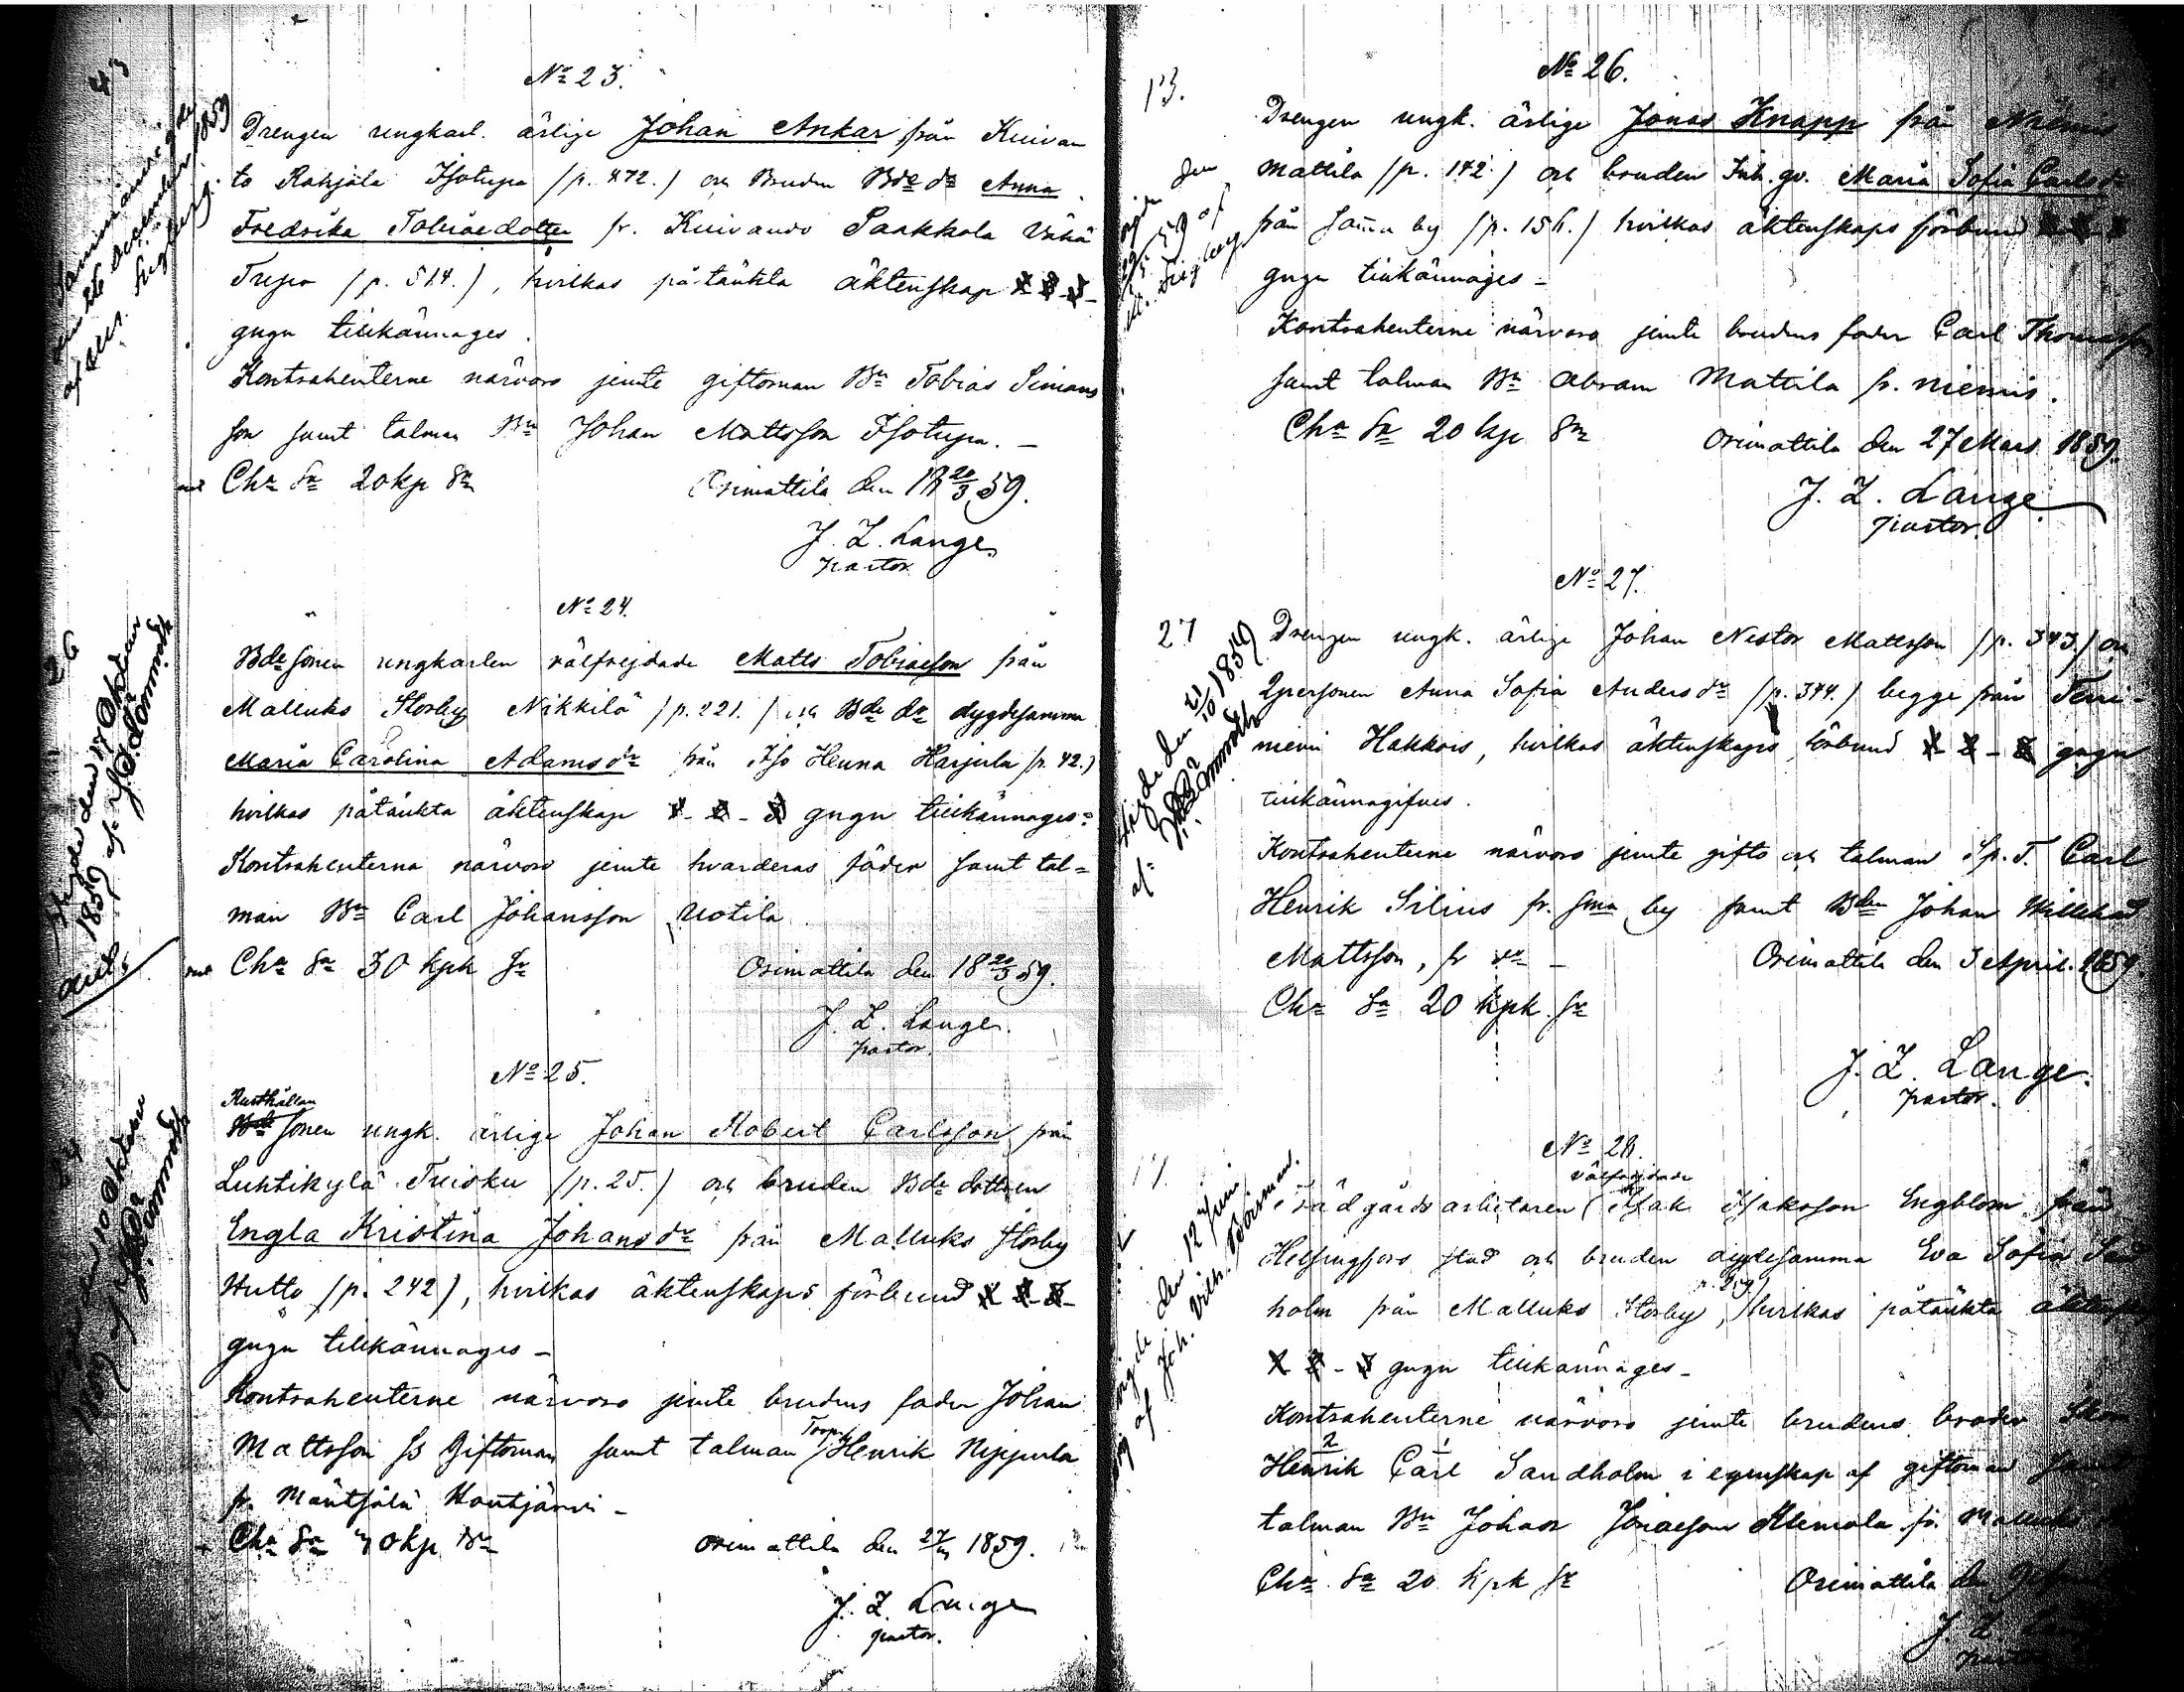 43
Sammanvigde
den 26 december 1859
af
No 23.
Drengen ungkarl. ärlige Johan Ankar från Kuivan
to Rahjala Isotupa (p. 472.) och Bruden Bde dr Anna
Fredrika Tobiaedotter fr. Kuivando Paakkola Vähä
Tupa (p. 514.), hvilkas påtänkta äktenskap 1-2-3-
gngn tillkännages.
Kontrahenterne närvoro jemte giftoman Bn Tobias Simons
son samt talman Bn Johan Mattsson Isotupa. –
Chr Sr 20 kp Sr
Orimattila den 18 20/3 59.
J. Z. Lange
pastor
26
Vigde den 17 Oktober
1859 af
No 24.
Bde sonen ungkarlen välfrejdade Matts Tobiaeson från
Malluks Storby Nikkilä (p. 221.) och Bde dr dygdesamma
Maria Carolina Adamsdr från Iso Henna Harjula (p. 42.)
hvilkas påtänkta äktenskap 1-2-3 gngn tillkännages:
Kontrahenterna närvoro jemte hvarderas fäder samt tal=
man Bn Carl Johansson Uotila
Chr Sr 30 kpk Sr
Orimattila den 18 20/3 59.
J. Z. Lange.
pastor.
No 25.
Rusthållar
Bde sonen ungk. ärlige Johan Robert Carlsson från
Luhtikylä Tuisku (p. 25.) och bruden Bde dottren
Engla Kristina Johansdr från Malluks Storby
Hutto (p. 242), hvilkas äktenskaps förbund 1-2-3-
gngn tillkännages –
Kontrahenterne närvoro jemte brudens fader Johan
Mattsson ss Giftoman samt talman Torp. Henrik Nippula
fr. Mäntsälä Hautjärvi –
Chr Sr 30 kp Sr
Orimattila den 27/3 1859.
J. Z. Lange
pastor.
13.
No 26.
Drengen ungk. ärlige Jonas Knapp från Niemis
Mattila (p. 142.) och bruden Inh. gv. Maria Sofia Carlsdr
från samma by (p. 156.) hvilkas äktenskaps förbund 1-2-3
gngn tillkännages –
Kontrahenterne närvoro jemte brudens fader Carl Thomasson
samt talman Bn Abram Mattila fr. Niemis.
Chr Sr 20 kp Sr
Orimattila den 27 Mars 1859.
J. Z. Lange
pastor.
27
Vigde den 21/10 1859
af
No 27.
Drengen ungk. ärlige Johan Nestor Mattsson (p. 343.) och
Qpersonen Anna Sofia Andersdr (p. 344.) begge från Terri-
niemi Hakkois, hvilkas äktenskaps förbund 1-2-3 gngn
tillkännagifves.
Kontrahenterne närvoro jemte gifto och talman Sp. T. Carl
Henrik Silius fr. sma by samt Bden Johan Willehad
Mattsson, fr dr –
Orimattila den 3 April. 1859
Chr Sr 20 kpk Sr
J. Z. Lange.
pastor.
17.
Vigde den 12 Juni
af Joh. Vilh.
No 28.
välfrejdade
Trädgårds arbetaren Isak Isaksson Engblom från
Helsingfors stad och bruden dygdesamma Eva Sofia Sad
holm från Malluks Storby, p. 259) hvilkas påtänkta äktenskap
1-2-3 gngn tillkännages –
Kontrahenterne närvoro jemte brudens broder Skom
Henrik Carl Sandholm i egenskap af giftoman samt
talman Bn Johan Jonaeson Klemola fr. Malluks
Chr Sr 20 kpk Sr
Orimattila den
J. Z.
pastor